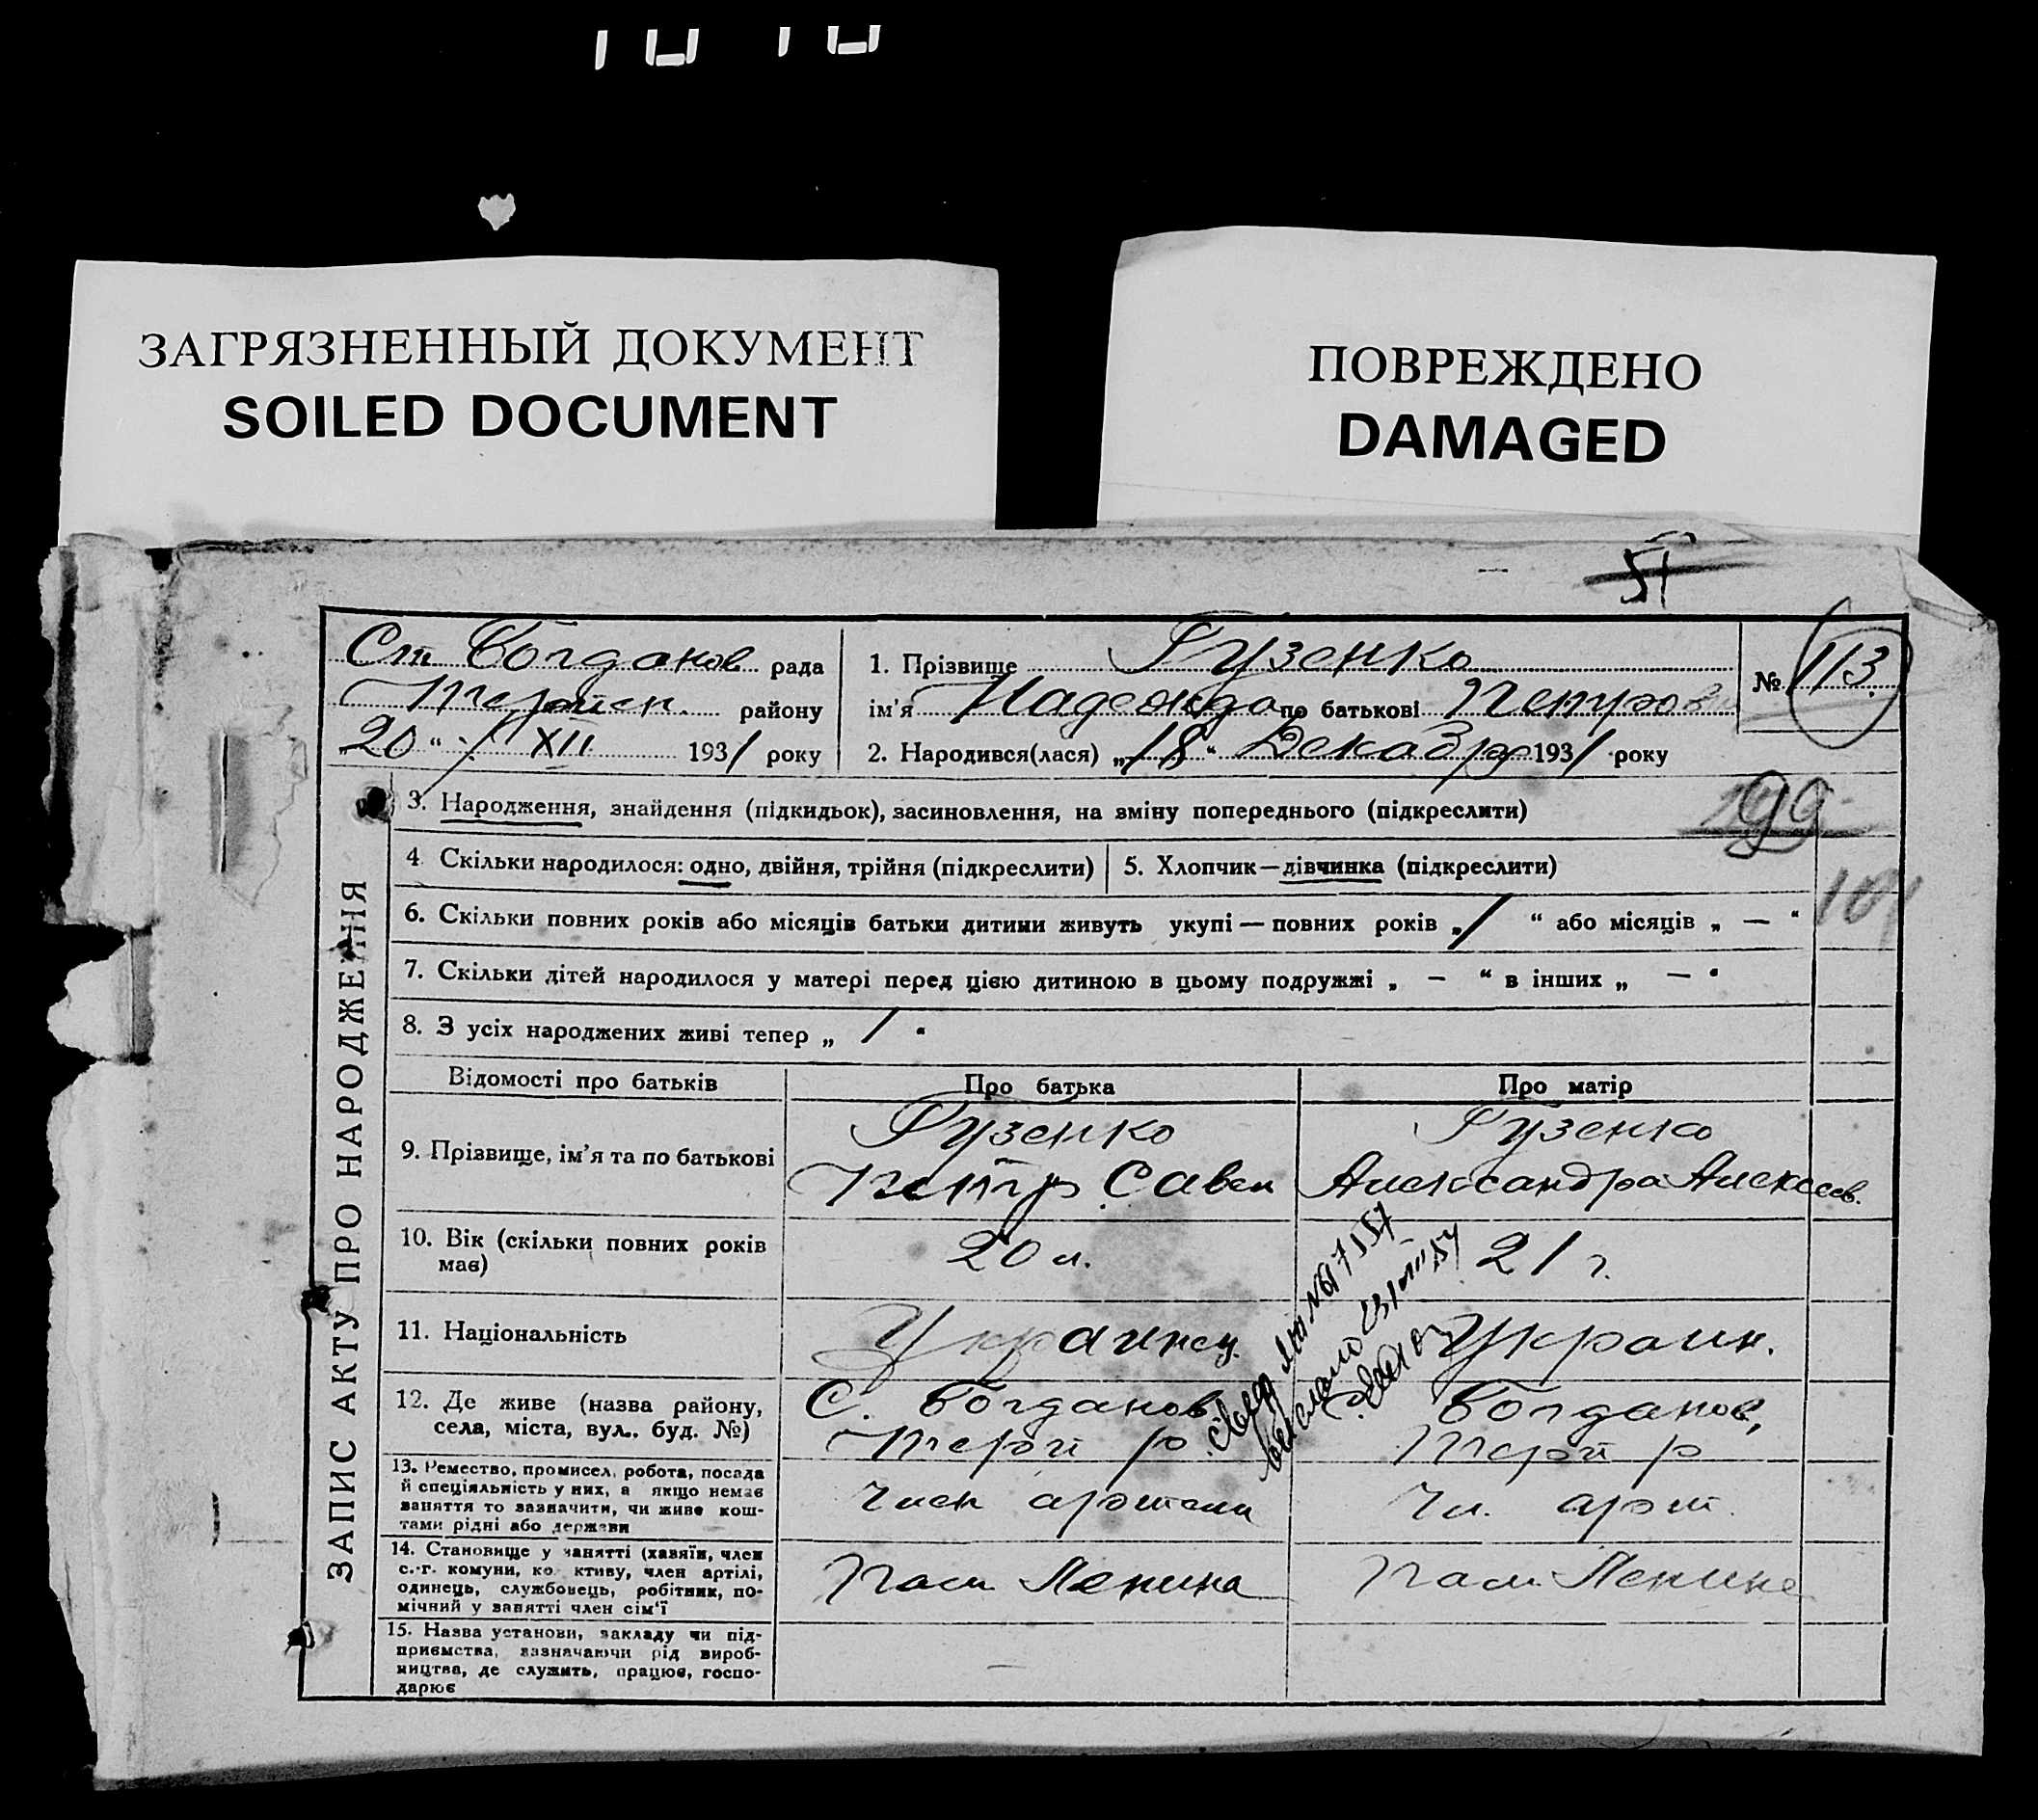 ЗАГРЯЗНЕННЫЙ ДОКУМЕНТ
SOILED DOCUMENT
ПОВРЕЖДЕНО
DAMAGED
51
Ст Богданов рада
району
20 “ XII 1931 року
1. Прізвище Гузенко
ім’я Надежда по батькові Петров
2. Народився(лася) „18“ Декабр 1931 року
№ 113
99
101
ЗАПИС АКТУ ПРО НАРОДЖЕННЯ
3. Народження, знайдення (підкидьок), засиновлення, на зміну попереднього (підкреслити)
4. Скільки народилося: одно, двійня, трійня (підкреслити)
5. Хлопчик—дівчинка (підкреслити)
6. Скільки повних років або місяців батьки дитини живуть укупі — повних років „ 1 “ або місяців „ — “
7. Скільки дітей народилося у матері перед цією дитиною в цьому подружжі „ – “ в інших „ — “
8. З усіх народжених живі тепер „ 1 “
Відомості про батьків
Про батька
Про матір
9. Прізвище, ім’я та по батькові
Гузенко
Петр Савел
Гузенко
Александра Алексеев.
10. Вік (скільки повних років
має)
20 л.
21 г.
11. Національність
Украинец
Украин.
12. Де живе (назва району,
села, міста, вул., буд. №)
С. Богданов
р
Богданов,
р
13. Ремество, промисел, робота, посада
й спеціяльність у них, а якщо немає
заняття то зазначити, чи живе кош-
тами рідні або держави
Член артели
Чл. арт.
14. Становище у занятті (хазяїн, член
с.-г. комуни, ко ктиву, член артілі,
одинець, службовець, робітник, по-
мічний у занятті член сім’ї
Ленина
Ленина
15. Назва установи, закладу чи під-
приємства, зазначаючи рід вироб-
ництва, де служить, працює, госпо-
дарює
выслано